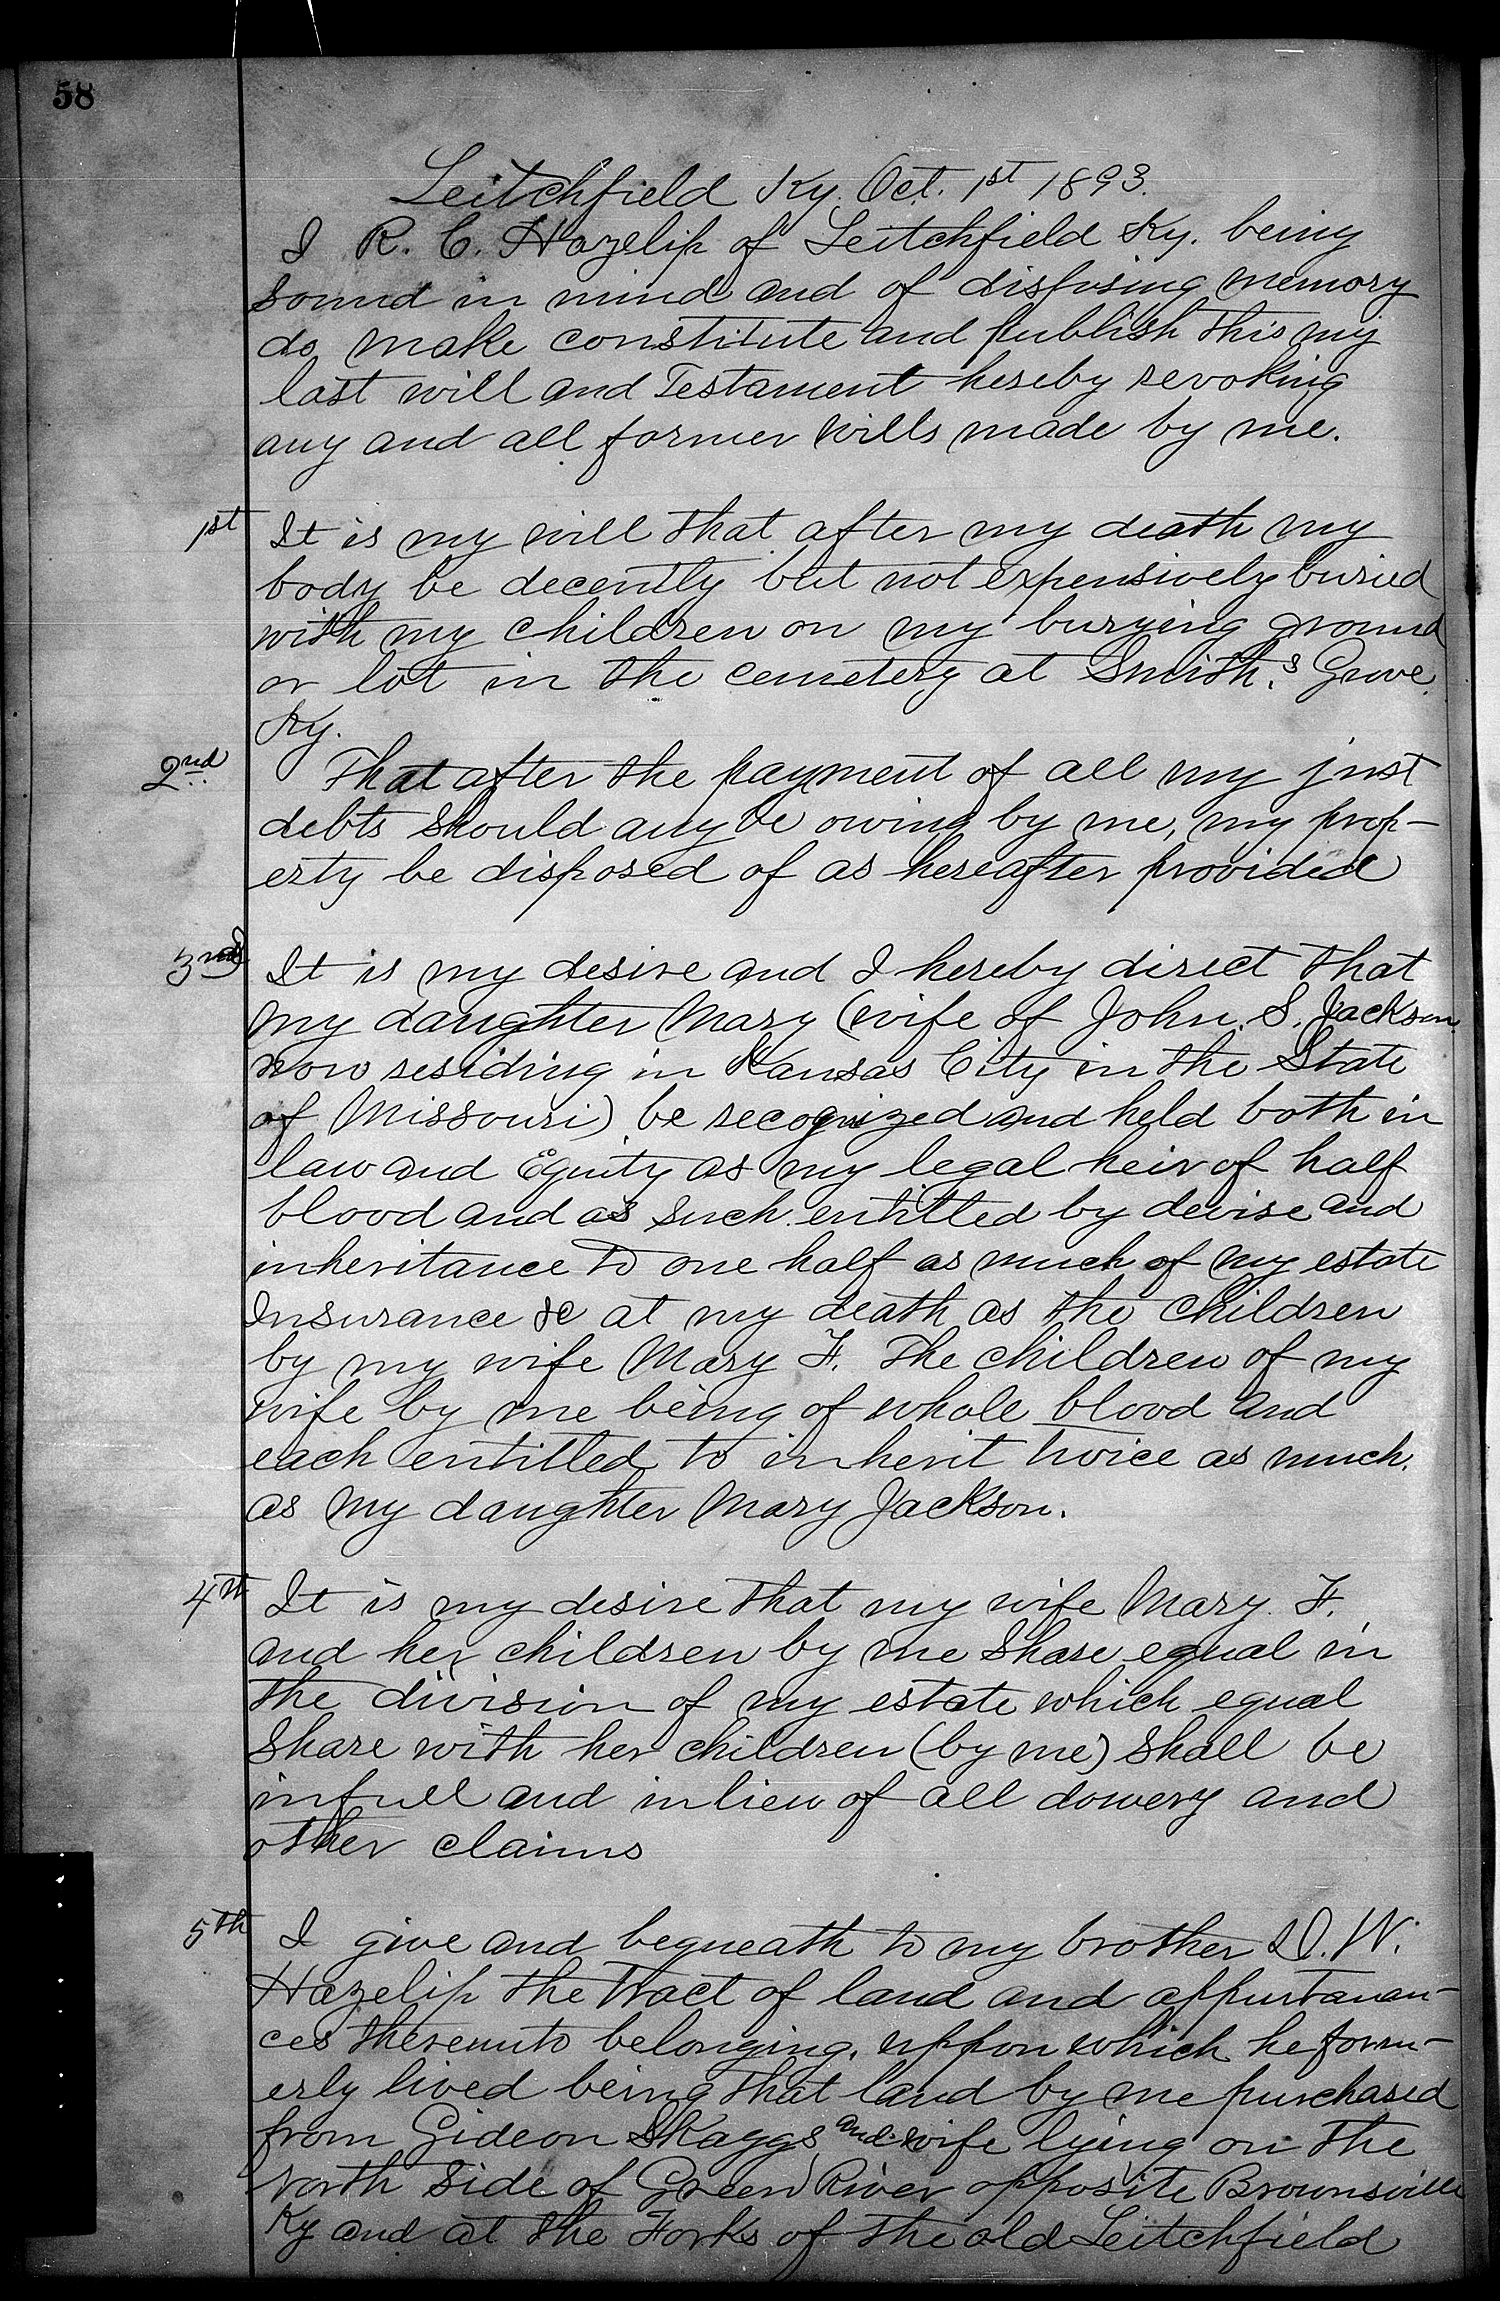 58
Leitchfield Ky. Oct. 1st 1893.
I R. C. Hazelip of Leitchfield Ky. being
sound in mind and of disposing memory
do make constitute and publish this my
last will and Testament hereby revoking
any and all former wills made by me.
1st It is my will that after my death my
body be decently but not expensively buried
with my children on my burying ground
or lot in the cemetery at Smith,s Grove
Ky.
2nd. That after the payment of all my just
debts should any be owing by me, my prop-
erty be disposed of as hereafter provided
3nd It is my desire and I hereby direct that
my daughter Mary (wife of John S. Jackson
now residing in Kansas City in the State
of Missouri) be recognized and held both in
law and Equity as my legal heir of half
blood and as such entitled by devise and
inheritance to one half as much of my estate
Insurance &c at my death as the children
by my wife Mary F. The children of my
wife by me being of whole blood and
each entitled to inherit twice as much.
as my daughter Mary Jackson.
4th It is my desire that my wife Mary F.
and her children by me share equal in
the division of my estate which equal
share with her children (by me) shall be
in full and in lieu of all dowery and
other claims
5th I give and bequeath to my brother D. W.
Hazelip the tract of land and appurtanan-
ces thereunto belonging, uppon which he form-
erly lived being that land by me purchased
from Gideon Skaggs and wife lying on the
North side of Green River opposite Brownsville
Ky and at the Forks of the old Leitchfield